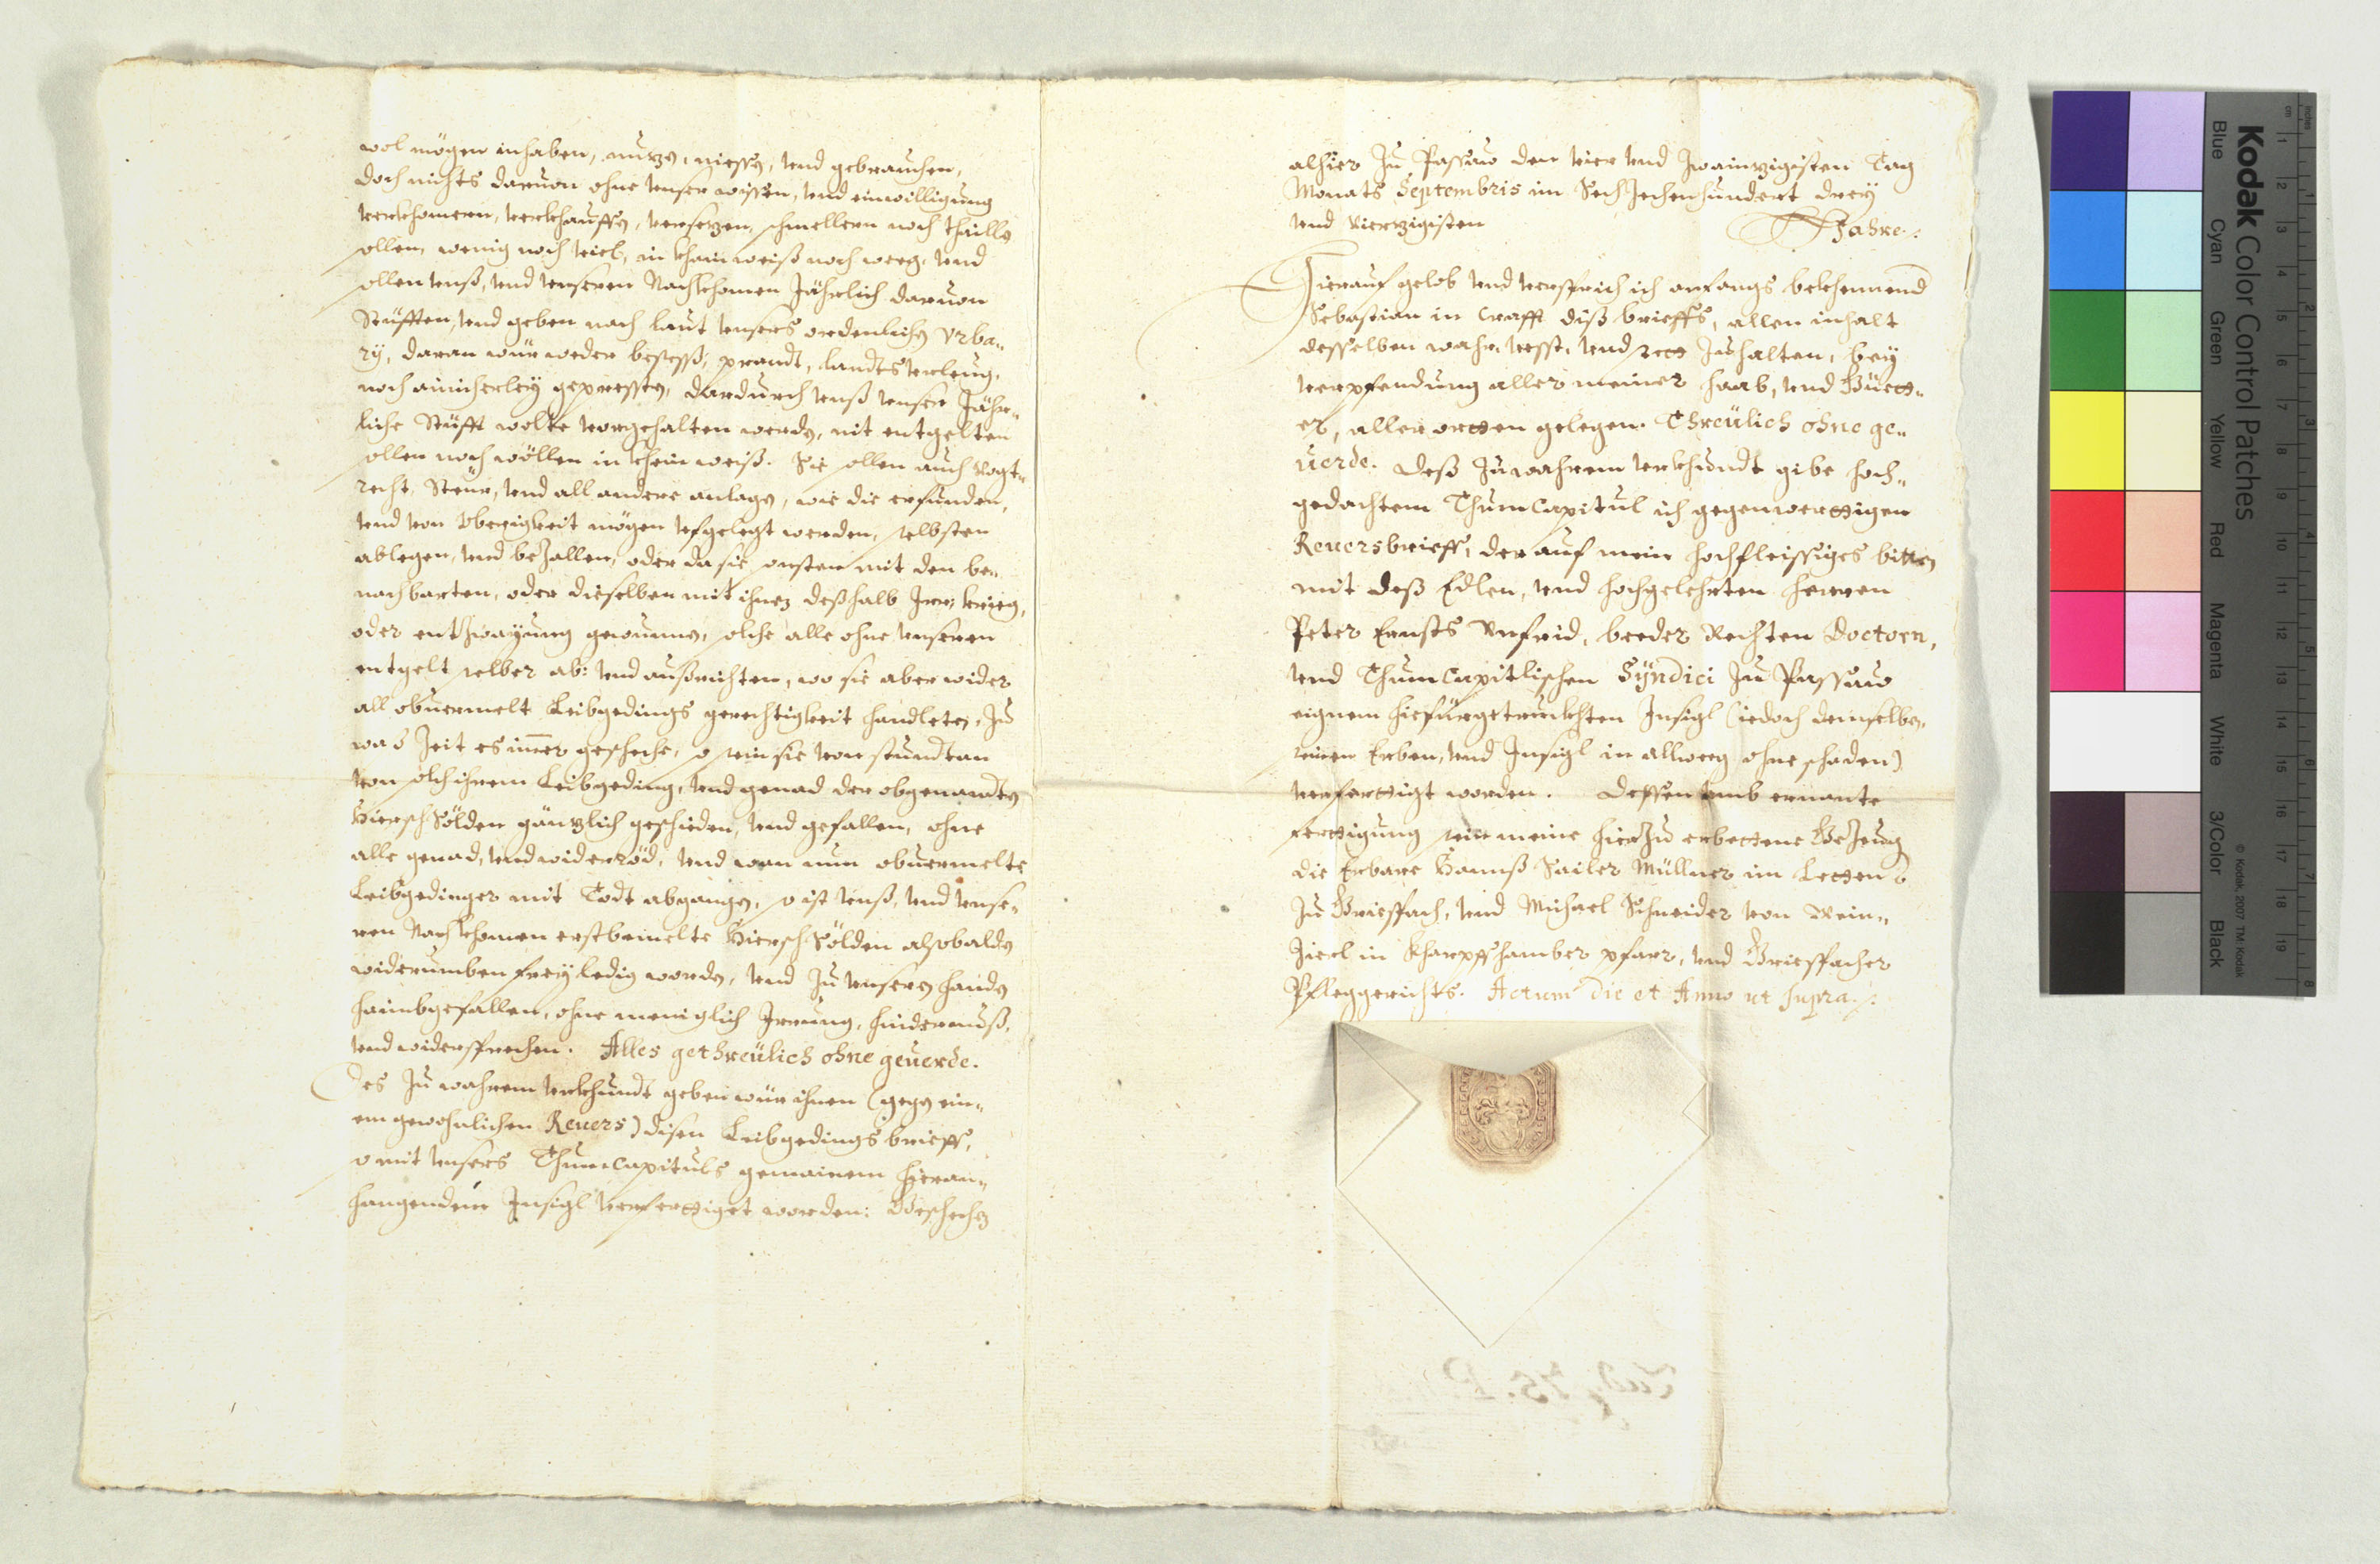 wol mögen inhaben, nuzen, niessen, vnd gebrauchen,
doch nichts daruon ohne vnser wissen, vnd einwilligung
verkhomern, verkhauffen, versezen, schmellern noch thaillen
sollen, wenig noch viel, in khain weiß noch weeg, vnd
sollen vnß, vnd vnseren Nachkhomen Jährlich daruon
Stüfften, vnd geben nach laut vnsers ordenlichen Vrba„
rÿ, daran wür weder besess, prandt, landts
noch ainicherleÿ gepressten, dardurch vnß vnser Jähr„
liche Stüfft wolte vorgehalten werden, nit entgelten
sollen noch wöllen in khein weiß. Sie sollen auch Vogt„
recht, Steur, vnd all andere anlagen, wie die erfunden,
vnd von Obrigkeit mögen vfgelegt werden, selbsten
ablegen, vnd bezallen, oder da sie sonsten mit den be„
nachbarten, oder dieselben mit ihnen deßhalb Irr, krieg,
oder entzwayung gewunnen, solche alle ohne vnseren
entgelt selber ab: vnd außrichten, wo sie aber wider
all obuermelt Leibgedings gerechtigkeit handleten, zu
was zeit es imer gescheche, so sein sie von stundtan
von solch ihrem Leibgeding, vnd genad der obgenandten
Hiersch Sölden gänzlich geschieden, vnd gefallen, ohne
alle genad, vnd widerröd, vnd wan nun obuermelte
Leibgedinger mit Todt abgangen, so ist vnß, vnd vnse„
ren Nachkhomen erstbemelte Hiersch Sölden alsobalden
widerumben freÿ ledig worden, vnd zu vnseren handen
haimbgefallen, ohne meniglich Irrung, hindernuß,
vnd widersprechen. Alles gethreülich ohne geuerde.
Des zu wahrem vrkhundt geben wür ihnen (gegen ein„
em gewohnlichen Reuers) disen Leibgedings brieff,
so mit vnsers Thumcapituls gemainem hieran„
hangendem Insigl verfertiget worden: Geschehen
alhier zu Passaw den vier vnd zwainzigisten Tag
Monats Septembris im Sechzechenhundert dreÿ
vnd vierzigisten Jahre.:
Hierauf gelob vnd versprich ich anfangs bekhennend
Sebastian in crafft diß brieffs, allen inhalt
desselben wahr, vesst, vnd stett zuhalten, beÿ
verpfendung aller meiner haab, vnd Güett„
er, aller orthen gelegen. Threülich ohne ge„
uerde. Deß zu wahrem vrkhundt gibe hoch„
gedachtem Thumcapitul ich gegenwerttigen
Reuersbrieff, der auf mein hochfleissiges bitten
mit deß Edlen, vnd hochgelehrten herren
Peter Ernsts Unfrid, beeder Rechten Doctorn,
vnd Thumcapitlischen Sÿndici zu Passaw
eignem hiefürgetruckhten Insigl (iedoch demselben,
seinen Erben, vnd Insigl in allweeg ohne schaden)
verferttigt worden. Dessen vmb ernante
ferttigung sein meine hierzu erbettene Gezeug
die Erbare Hannß Sailer Müllner im Letten
zu Griespach, vnd Michael Schneider von Wein„
zierl in Kharpfhamber pfarr, vnd Griespacher
Pfleggerichts. Actum die et Anno ut supra.:
Kodak Color Control Patches
Blue Cyan Green Yellow Red Magenta White 3/Color Black
© Kodak, 2007 TM: Kodak
inches
cm
1 2 3 4 5 6 7 8 9 10 11 12 13 14 15 16 17 18 19
1 2 3 4 5 6 7 8